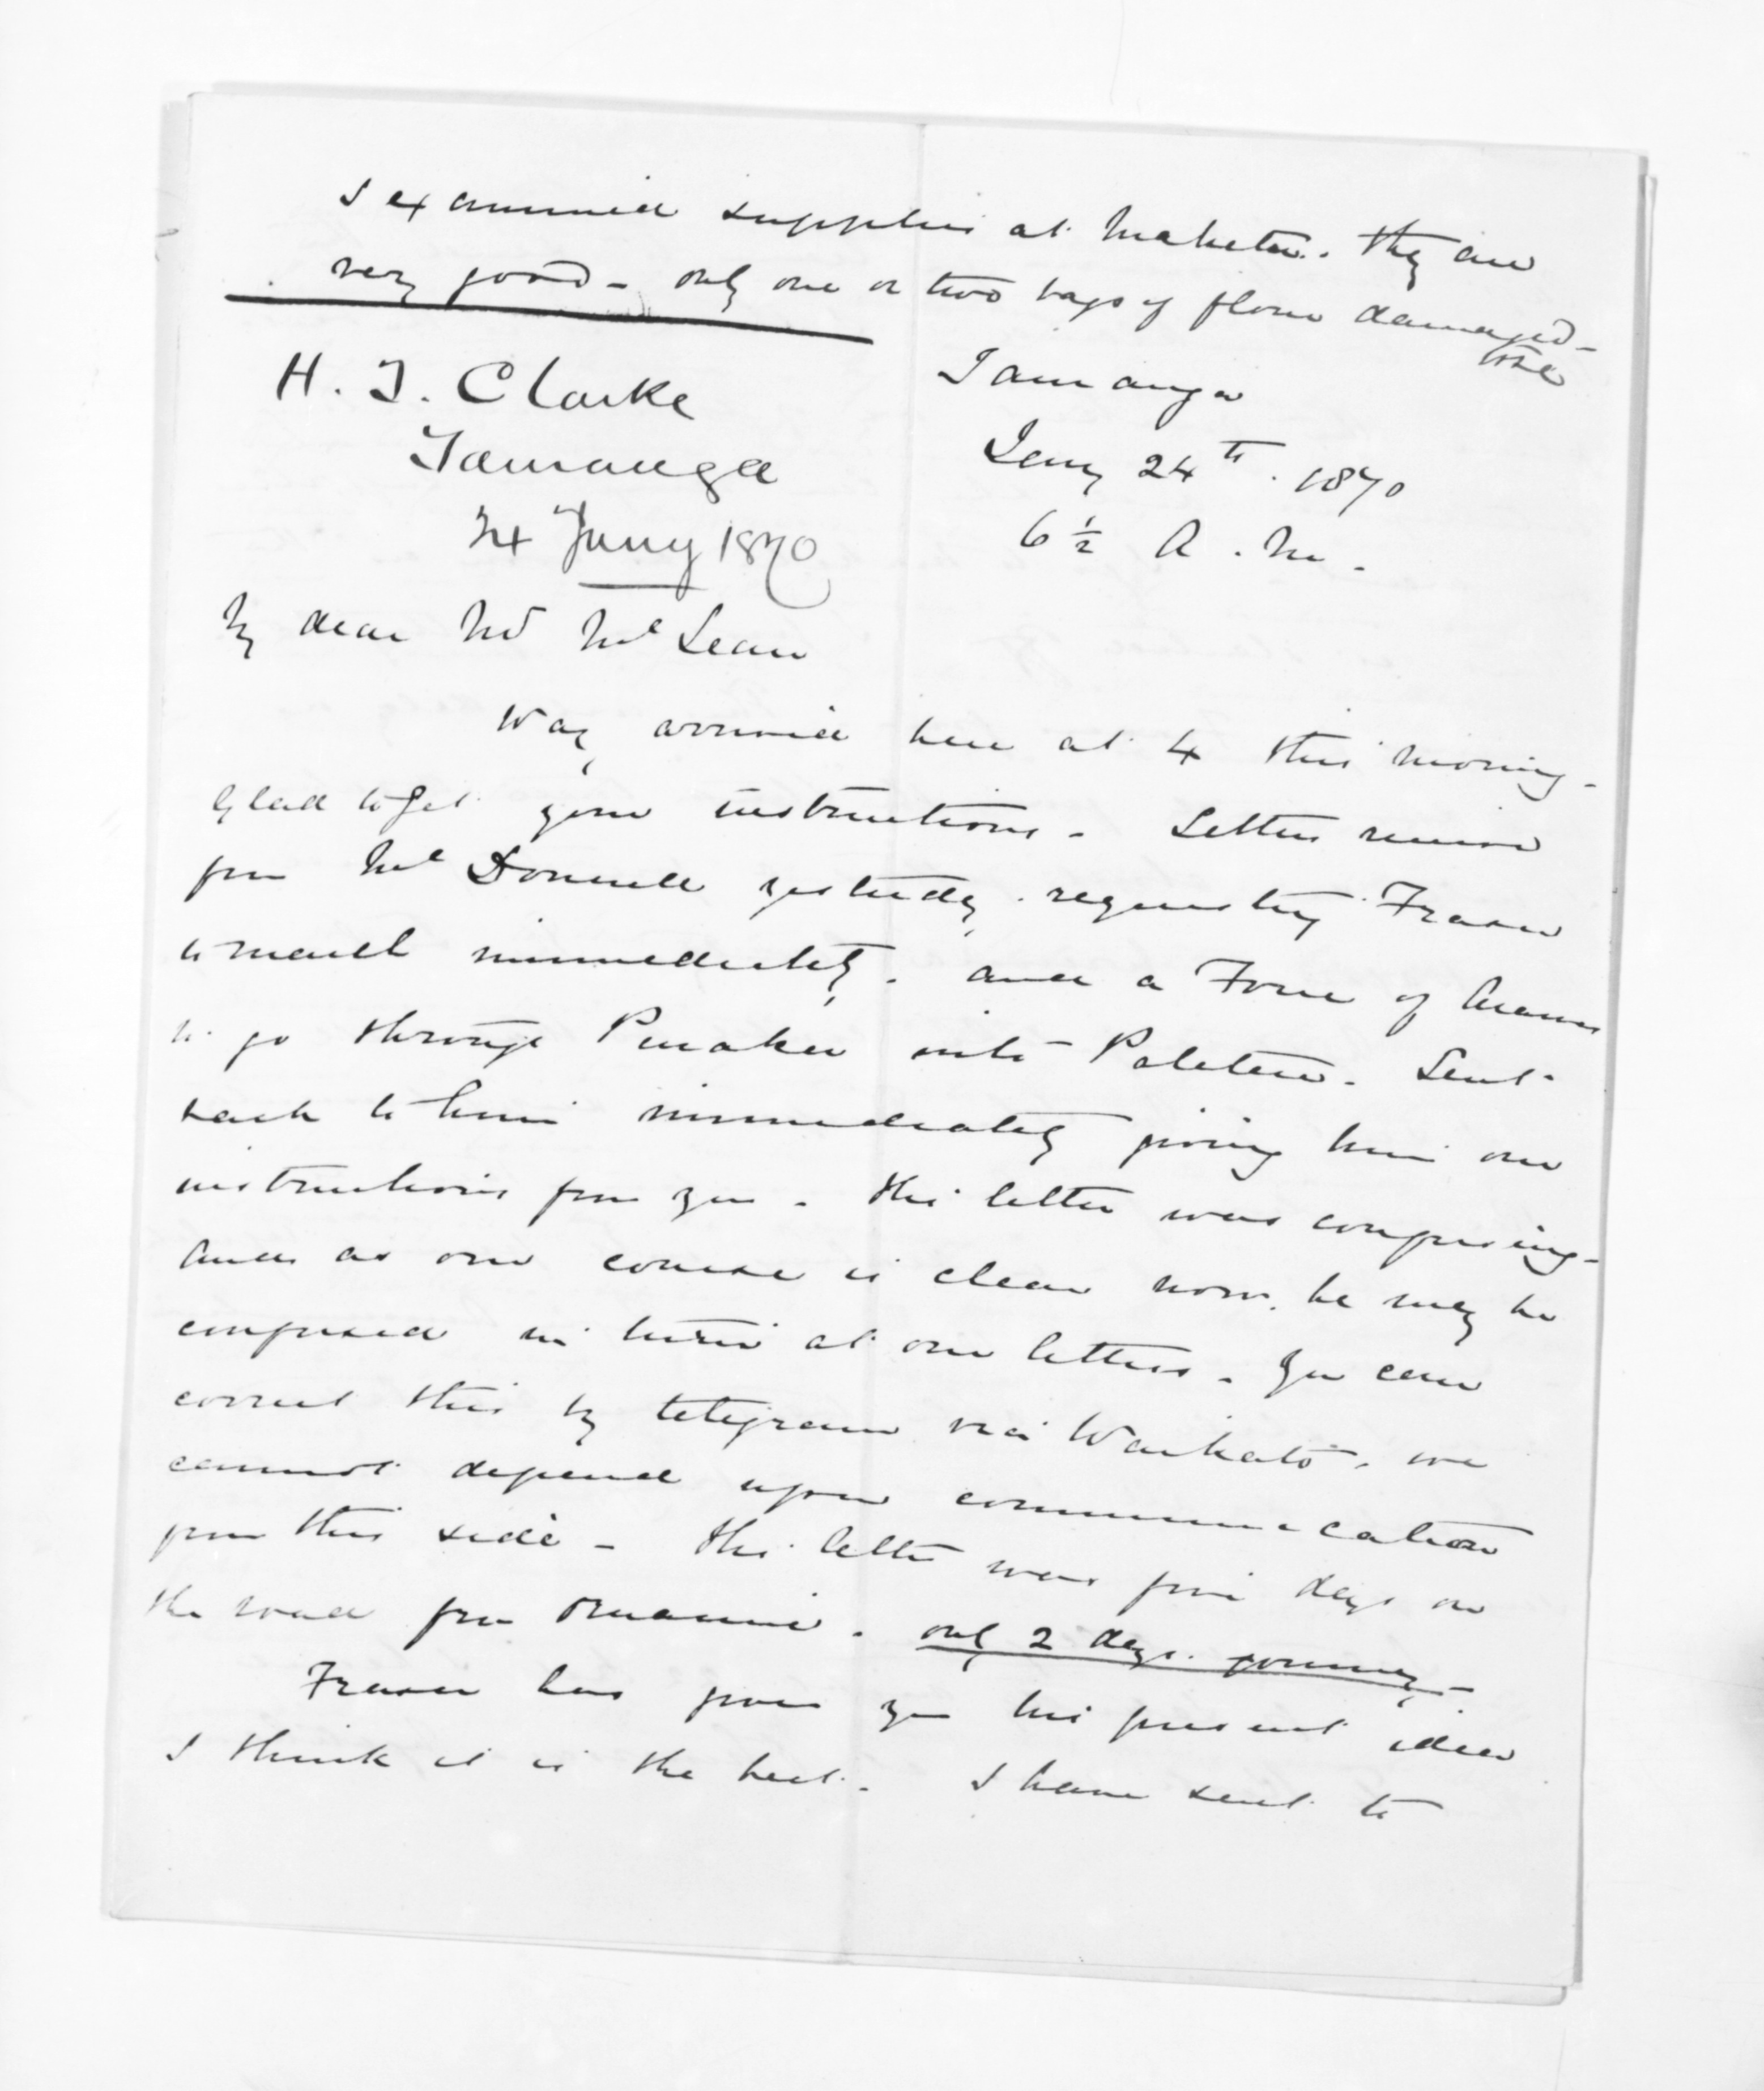 I examined supplies at Maketu. They are
very good - only one or two bags of flour damaged -
H. T. Clarke
Tauranga
24 Jany 1870
Tauranga
Jany 24th. 1870
6 1/2 A.M.
My dear Mr McLean
Way arrived here at 4 this morning -
glad to get your instructions. Letters received
from McDonnell yesterday requesting Fraser
to march immediately. and a Force of Arawas
to go through Puraker into Patetere. Sent
back to him immediately giving him our
instructions from you. His letter was confusing -
and as our course is clear now, he may be
confused in turn at our letters. You can
correct this by telegram via Waikato. we
cannot depend upon communication
from this side - His letter was five days on
the road from Oruanui. only 2 days journey -
Fraser has given you his present idea
I think it is the best. I have sent to